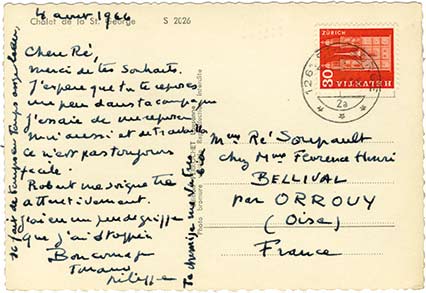 4 août 1966
Chalet de la St. George S 2026
Chère Ré,
merci de tes souhaits.
J'espère que tu te reposes
un peu dans ta campagne
J'essaie de me reposer
moi aussi et de travailler
ce n'est pas toujours
facile.
Robert me soigne très
attentivement.
J'ai eu un peu de grippe
que j'ai stoppée
Bon courage
Philippe
Ta chemise me va très
bien
il fait de temps en temps assez beau
Photo bromure
Reproduction interdite
ZÜRICH
30
HELVETIA
126
2a
Mme Ré Soupault
chez Mme Florence Henri
BELLIVAL
par ORROUY
(Oise)
France